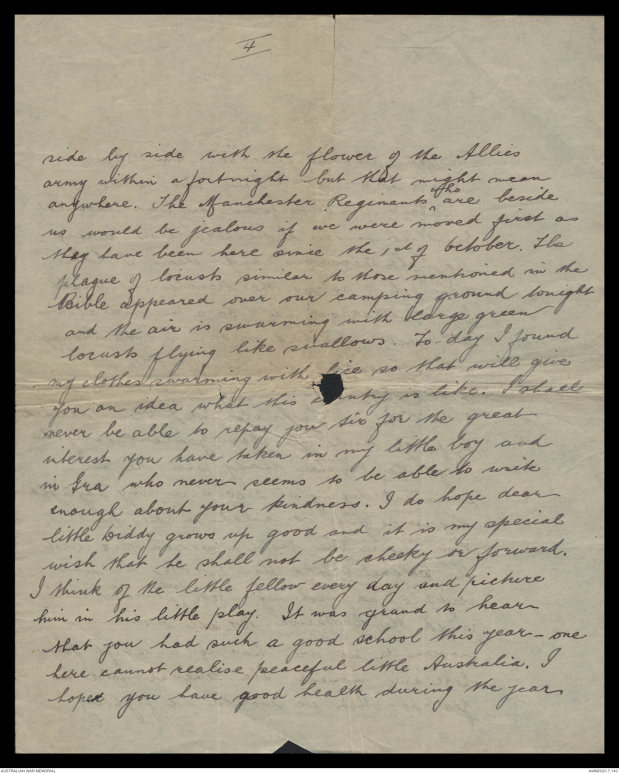 4
side by side with the flower of the Allies
army within a fortnight but that might mean
who
anywhere. The Manchester Regiments ^ are beside
us would be jealous if we were moved first as
they have been here since the 1st of October. The
plague of locusts similar to those mentioned in the
Bible appeared over our camping ground tonight
and the air is swarming with large green
locusts flying like swallows. To-day I found
my clothes swarming with lice so that will give
you an idea what this country is like. I shall
never be able to repay you Sir for the great
interest you have taken in my little boy and
in Gra who never seems to be able to write
enough about your kindness. I do hope dear
little Widdy grows up good and it is my special
wish that he shall not be cheeky or forward.
I think of the little fellow every day and picture
him in his little play. It was grand to hear
that you had such a good school this year - one
here cannot realise peaceful little Australia. I
hope you have good health during the year
AUSTRALIAN WAR MEMORIAL